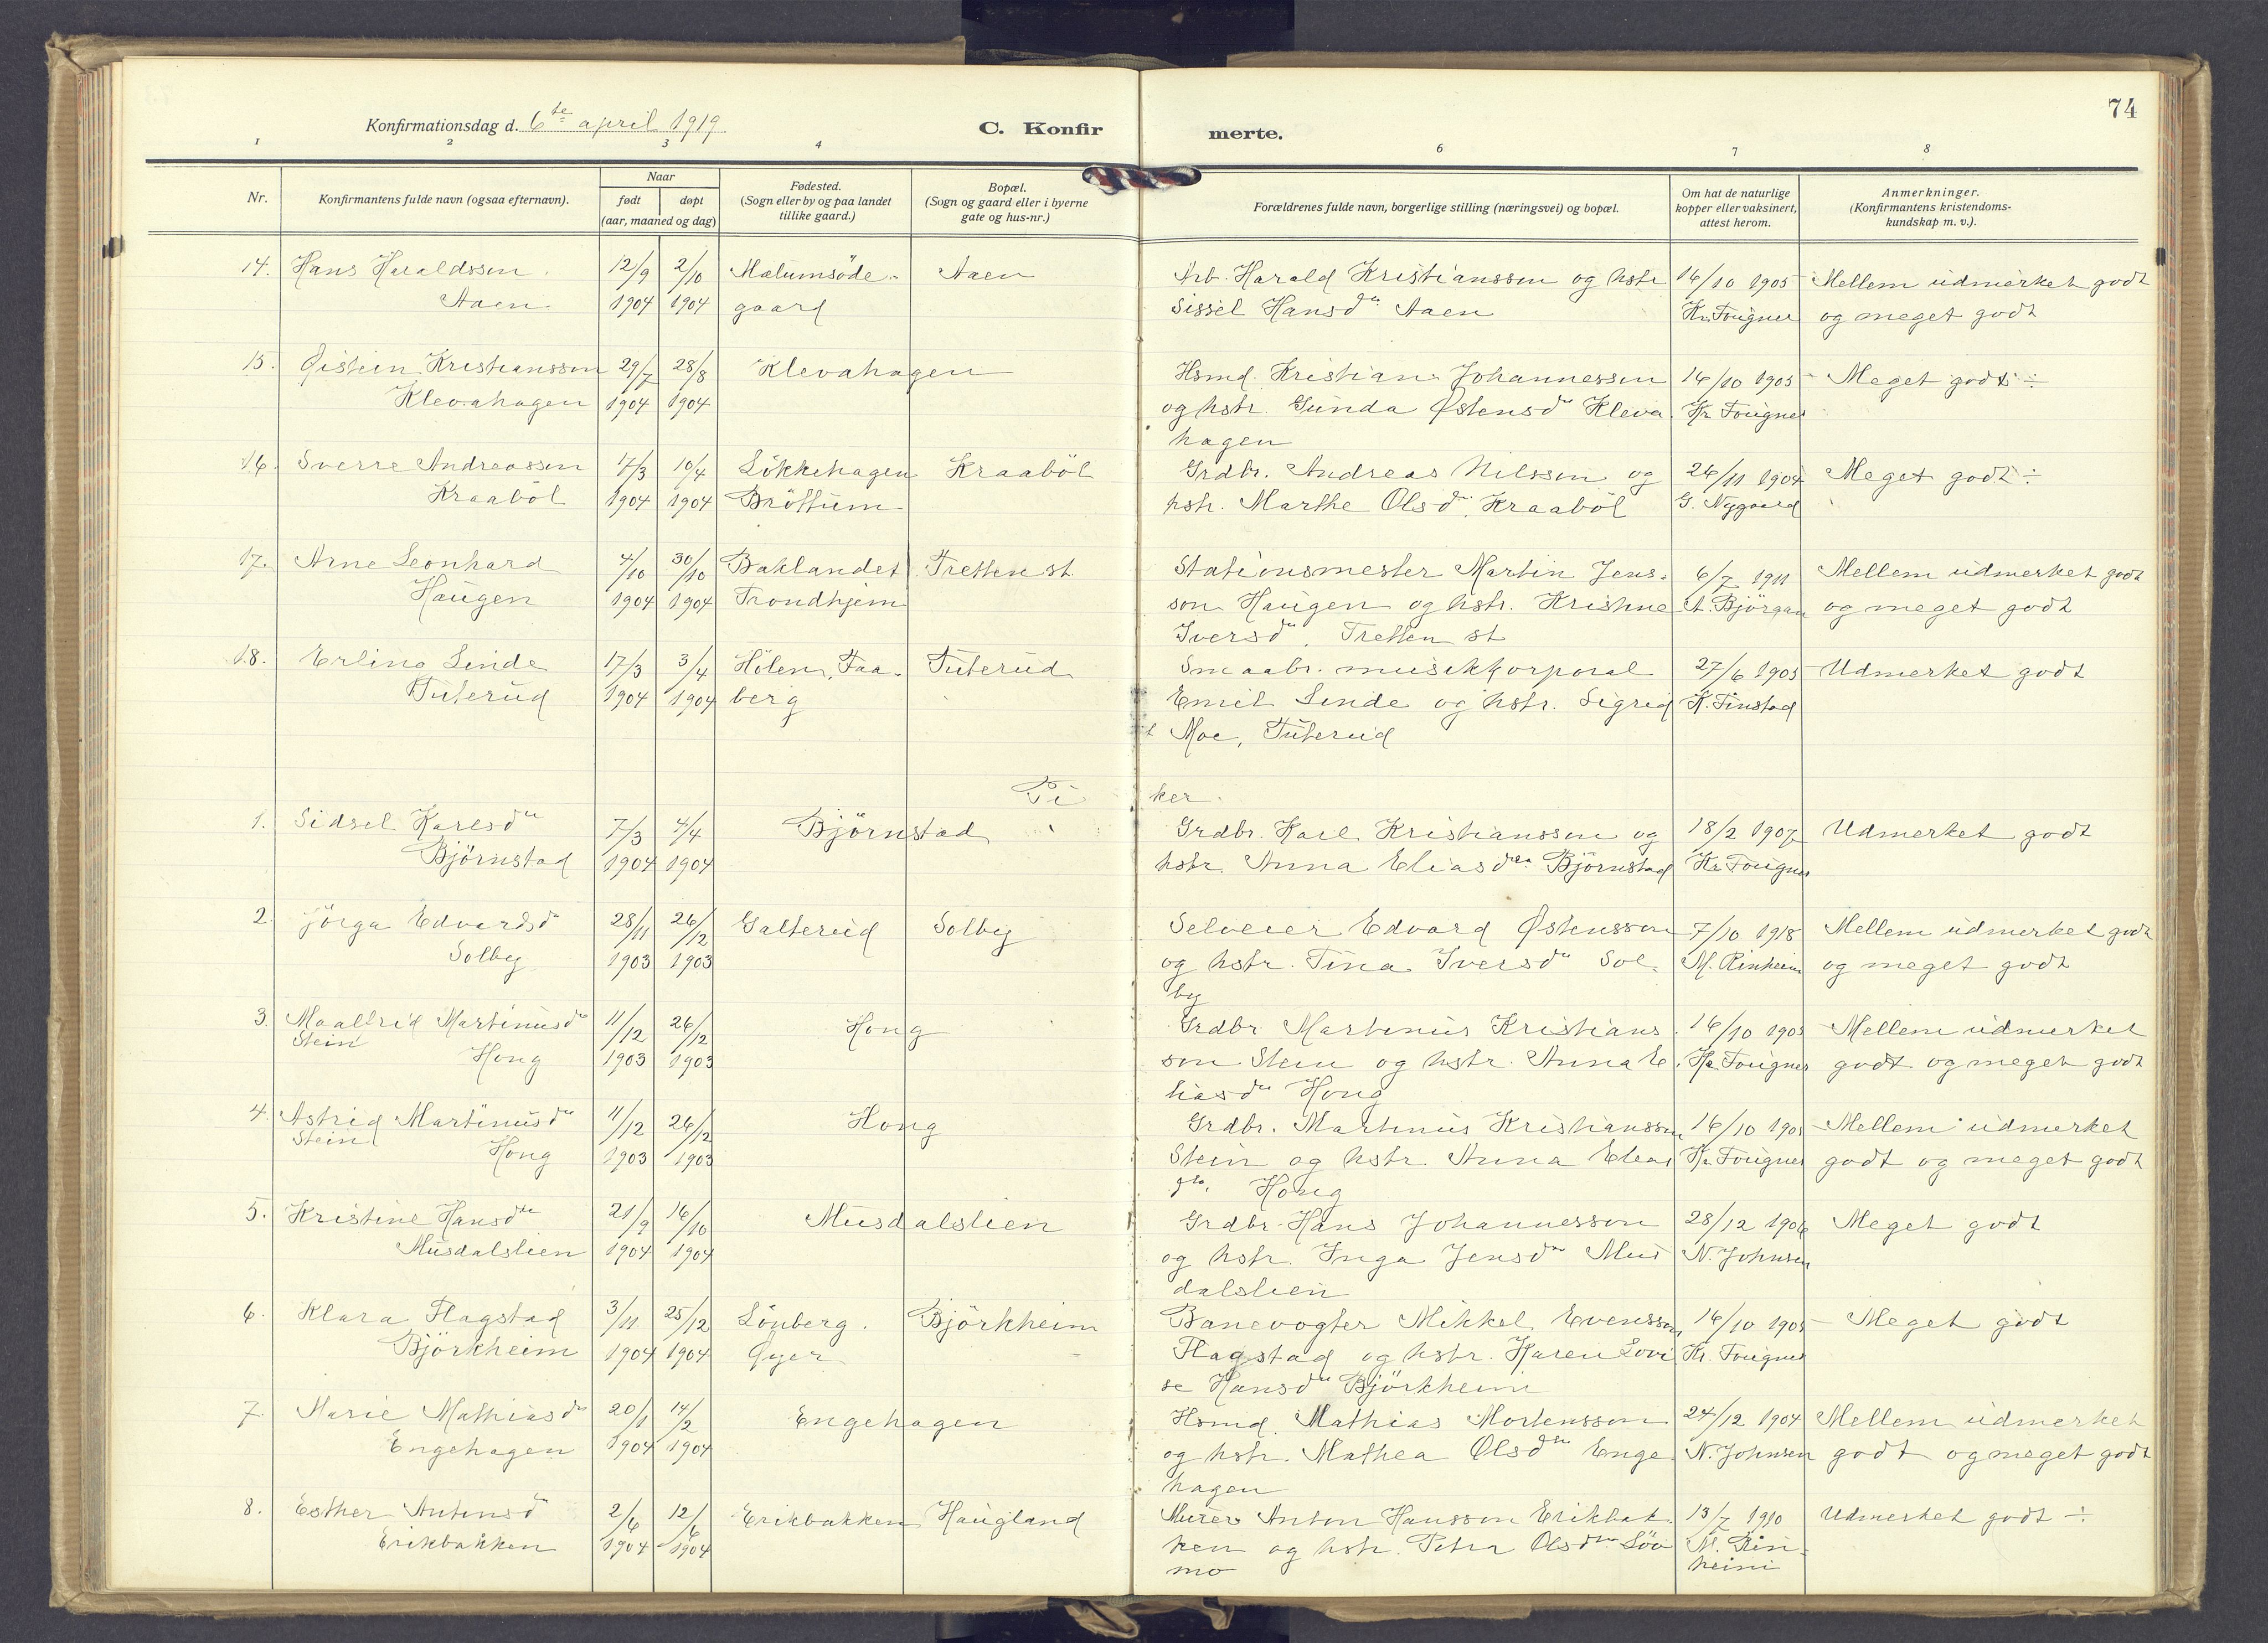 74
Konfirmationsdag d. 6te april 1919
C. Konfir
merte.
1 2 3 4 6 7 8
Nr.
Konfirmantens fulde navn (ogsaa efternavn).
Naar
født
døpt
(aar, maaned og dag)
Fødested.
(Sogn eller by og paa landet
tillike gaard.)
Bopæl.
(Sogn og gaard eller i byerne
gate og hus-nr.)
Forældrenes fulde navn, borgerlige stilling (næringsvei) og bopæl.
Om hat de naturlige
kopper eller vaksinert,
attest herom.
Anmerkninger.
(Konfirmantens kristendoms-
kundskap m. v.).
14. Hans Haraldssøn 12/9 2/10 Mælumsöde- Aaen Arb. Harald Kristianssøn og hstr 16/10 1905 Mellem üdmerket godt
Aaen 1904 1904 gaard Sissel Hansdr Aaen Kr. Fougner og meget godt
15. Øistein Kristianssøn 29/7 28/8 Klevahagen Hsmd. Kristian Johannessen 16/10 1905 Meget godt ÷
Klevahagen 1904 1904 og hstr. Gunda Østensdr Kleva Kr. Fougner
hagen
16. Sverre Andreassen 17/3 10/4 Lökkehagen Kraaböl Grdbr. Andreas Nilssen og 26/11 1904 Meget godt ÷
Kraaböl 1904 1904 Bröttum hstr. Marthe Olsdr. Kraaböl G. Nygaard
17. Arne Leonhard 4/10 30/10 Baklandet Tretten st. Stationsmester Martin Jens- 6/7 1911 Mellem üdmerket godt
Haugen 1904 1904 Trondhjem son Haugen og hstr. Kristine A. Björgan og meget godt
Iversdr, Tretten st
18. Erling Linde 17/3 3/4 Hölen, Faa- Tuterud Smaabr. musikkorporal 27/6 1905 Udmerket godt
Tuterud 1904 1904 berg Emil Linde og hstr. Sigrid K. Finstad
Moe, Tuterud
Pi ker.
1. Sidsel Karlsdtr 7/3 4/4 Björnstad Grdbr. Karl Kristianssen og 18/2 1907 Udmerket godt
Björnstad 1904 1904 hstr. Anna Eliasdtr Björnstad Kr. Fougner
2. Jörga Edvardsdr 28/11 26/12 Galterud Solby Selveier Edvard Østensson 7/10 1918 Mellem üdmerket godt
Solby 1903 1903 og hstr. Tina Iversdtr Sol- M. Rinheim og meget godt
by
3. Maalfrid Martinusdtr 11/12 26/12 Hong Grdbr Martinus Kristians 16/10 1905 Mellem üdmerket
Stein
Hong 1903 1903 son Stein og hstr. Anna E Kr. Fougner godt og meget godt
liasdtr Hong
4. Astrid Martinusdtr 11/12 26/12 Hong Grdbr. Martinus Kristianssen 16/10 1905 Mellem üdmerket
Stein
Hong 1903 1903 Stein og hstr. Anna Elias Kr. Fougner godt og meget godt
dtr. Hong
5. Kristine Hansdtr 21/9 16/10 Musdalslien Grdbr. Hans Johannesson 28/12 1906 Meget godt
Musdalslien 1904 1904 og hstr. Inga Jensdtr Mus N. Johnsen
dalslien
6. Klara Flagstad 3/11 25/12 Lönberg. Björkheim Banevogter Mikkel Evensson 16/10 1905 Meget godt
Björkheim 1904 1904 Øyer Flagstad og hstr. Karen Lovi Kr. Fougner
se Hansdtr Björkheim
7. Marie Mathiasdtr 20/1 14/2 Engehagen Hsmd. Mathias Mortensson 24/12 1904 Mellem üdmerket
Engehagen 1904 1904 og hstr. Mathea Olsdtr Enge N. Johnsen godt og meget godt
hagen
8. Esther Antonsd 2/6 12/6 Erikbakken Haugland Murer Anton Hansson Erikbak- 13/7 1910 Udmerket godt ÷
Erikbakken 1904 1904 ken og hstr. Petra Olsdtr Löv M. Rin-
mo heim